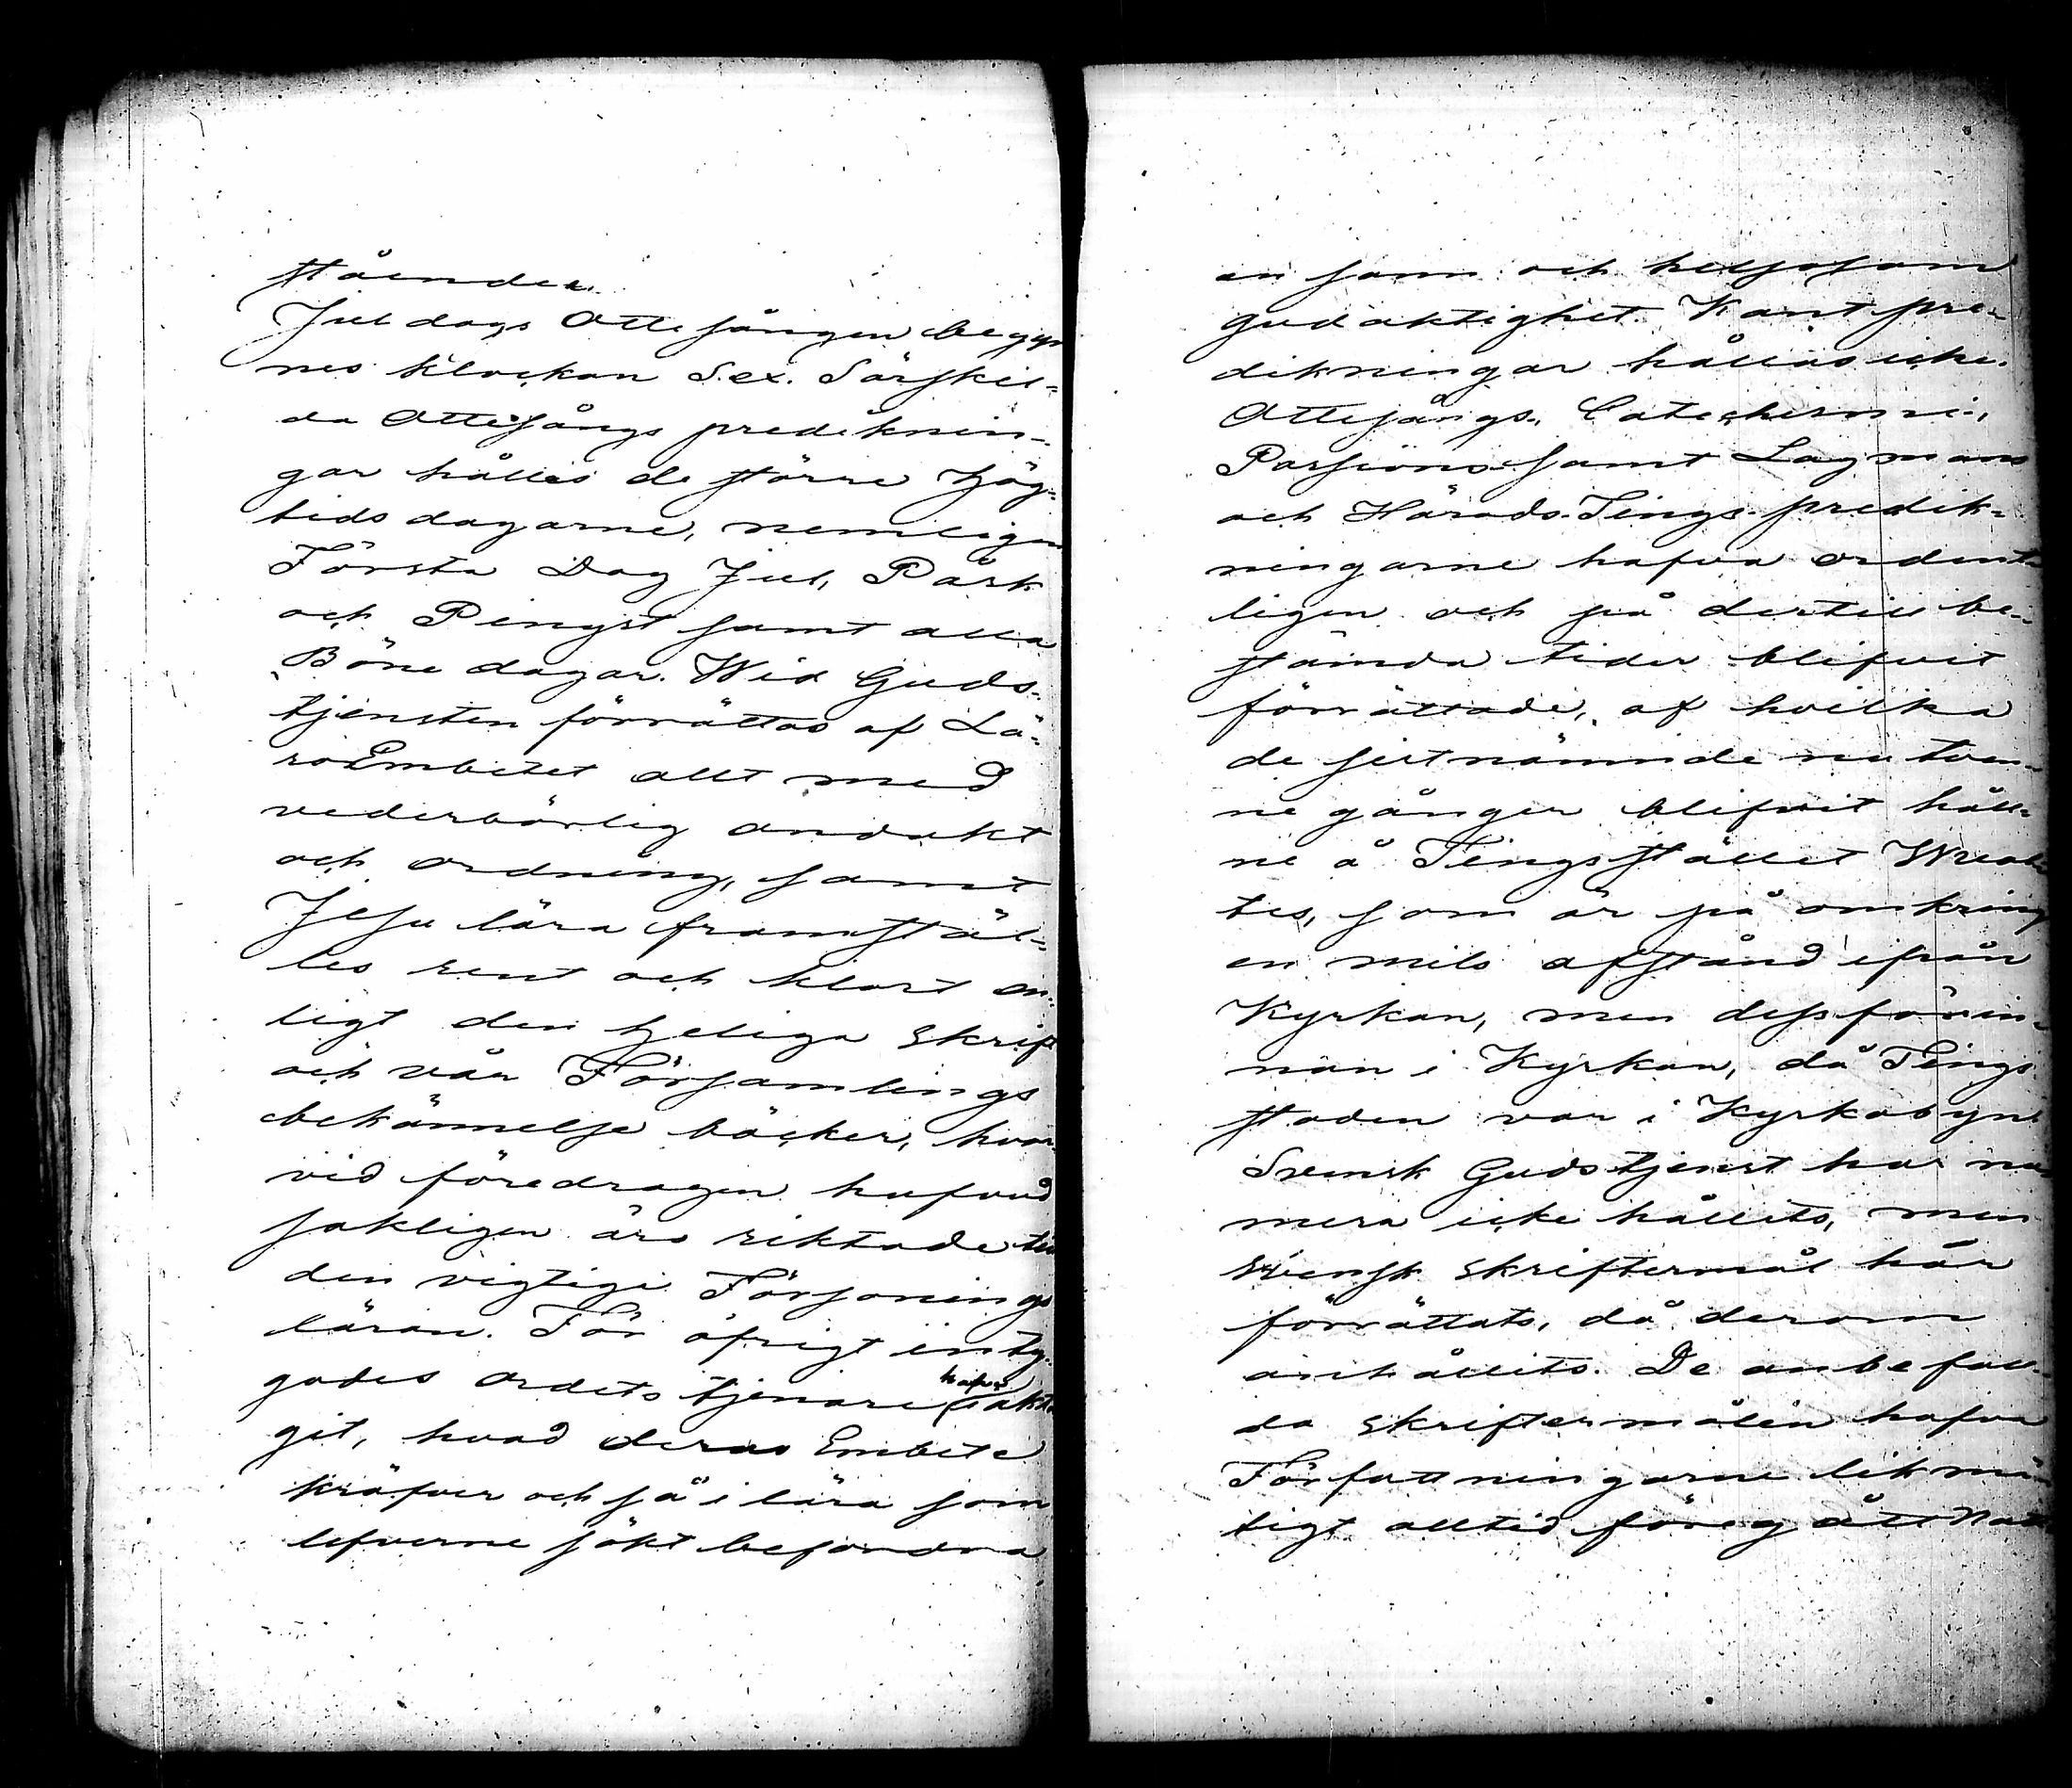 stående.
Juldags Ottesången begyn
nes klockan Sex. Särskil=
da Ottesångs prediknin-
gar hålles de större Hög=
tidsdagarne, nemligen
Första Dag Jul, Påsk
och Pingst samt alla
Bönedagar. Wid Guds-
tjensten förrättas af Lä-
roEmbetet allt med
vederbörlig andakt
och ordning, samt
Jesu lära framstäl-
les rent och klart en-
ligt den heliga skrift
och vår Församlings
bekännelse böcker, hvar
vid föredragen hufvud
sakligen äro riktade till
den vigtiga Försonings
läran. För öfrigt
gades ordets tjenare hafva iakt
git, hvad deras Embete
kräfver och så i lära som
lefverne sökt befordra
en sann och helsosam
gudaktighet. Kastpre-
dikningar hållas icke.
Ottesångs, Catechismi,
Passions samt Lagmans
och Härads-Tings-predik-
ningarne hafva ordent-
ligen och på dertill be-
stämda tider blifvit
förrättade, af hvilka
de sistnämnde nu tven-
ne gånger blifvit håll-
ne å Tingsstället
tes, som är på omkring
en mils afstånd ifrån
Kyrkan, men dessförin-
nan i Kyrkan, då Tings
staden var i Kyrkobyn.
Svensk Gudstjenst har nu
mera icke hållits, men
Svensk skriftermål har
förrättats, då derom
anhållits. De anbefall-
da skriftermålen hafva
Författningarne likmä
tigt alltid föregått Natt